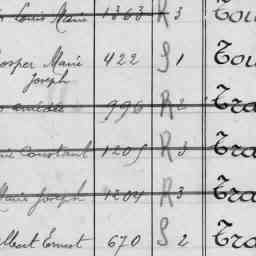 Louis Marie 1363 R 3 Tou
Prosper Marie 422 S 1 Tou
Joseph
996 R 2 Tra
Constant 1205 R 3 Tra
Marie Joseph 1204 R 3 Tra
Albert Ernest 670 S 2 Tra